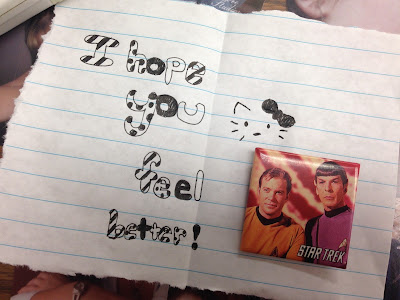 I hope
you
feel
better!
STAR TREK